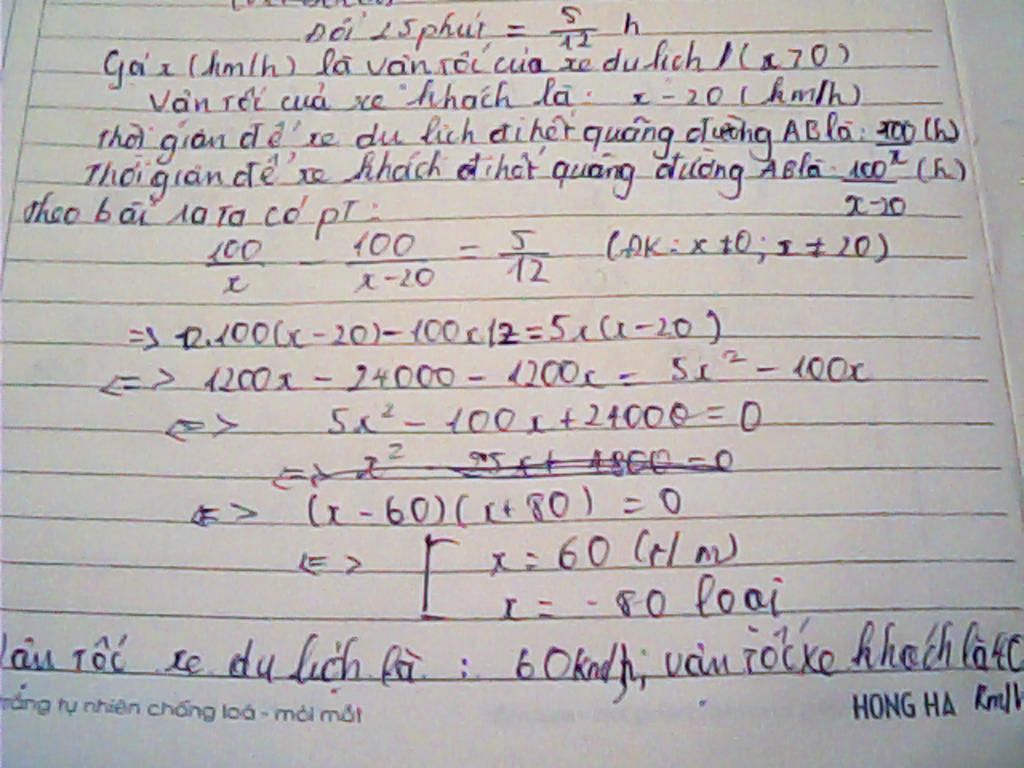 Đổi 25 phút = 5/12 h
Gọi x (km/h) là vận tốc của xe du lịch (x > 0)
Vận tốc của xe khách là: x - 20 (km/h)
Thời gian để xe du lịch đi hết quãng đường AB là: 100/x (h)
Thời gian để xe khách đi hết quãng đường AB là: 100/x-20 (h)
Theo bài ra ta có pT:
100/x - 100/x-20 = 5/12 (ĐK: x ≠ 0; x ≠ 20)
=> 12.100(x-20) - 100x12 = 5x(x-20)
<=> 1200x - 24000 - 1200x = 5x² - 100x
<=> 5x² - 100x + 24000 = 0
<=> (x-60)(x+80) = 0
<=> [ x = 60 (t/m)
x = -80 loại
Vận tốc xe du lịch là: 60km/h; vận tốc xe khách là 40
trắng tự nhiên chống loá - mỏi mắt HONG HA km/h